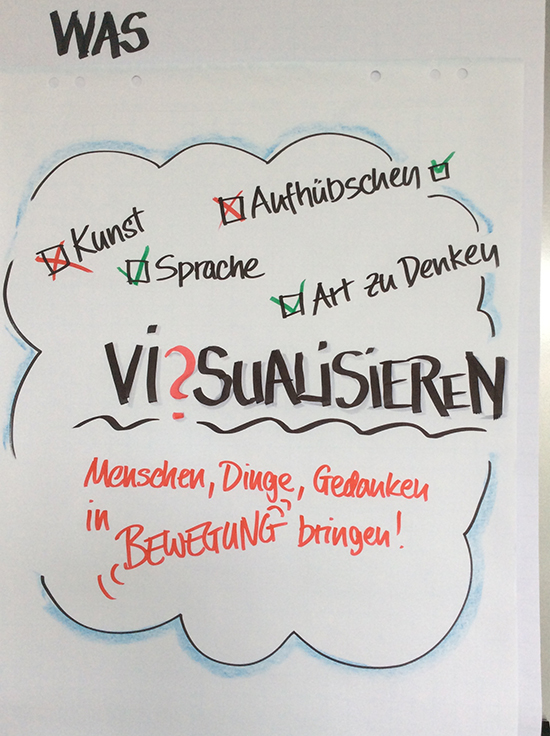 WAS
Aufhübschen
Kunst
Sprache
Art zu Denken
Vi?SUALiSiEREN
Menschen, Dinge, Gedanken
in BEWEGUNG bringen!